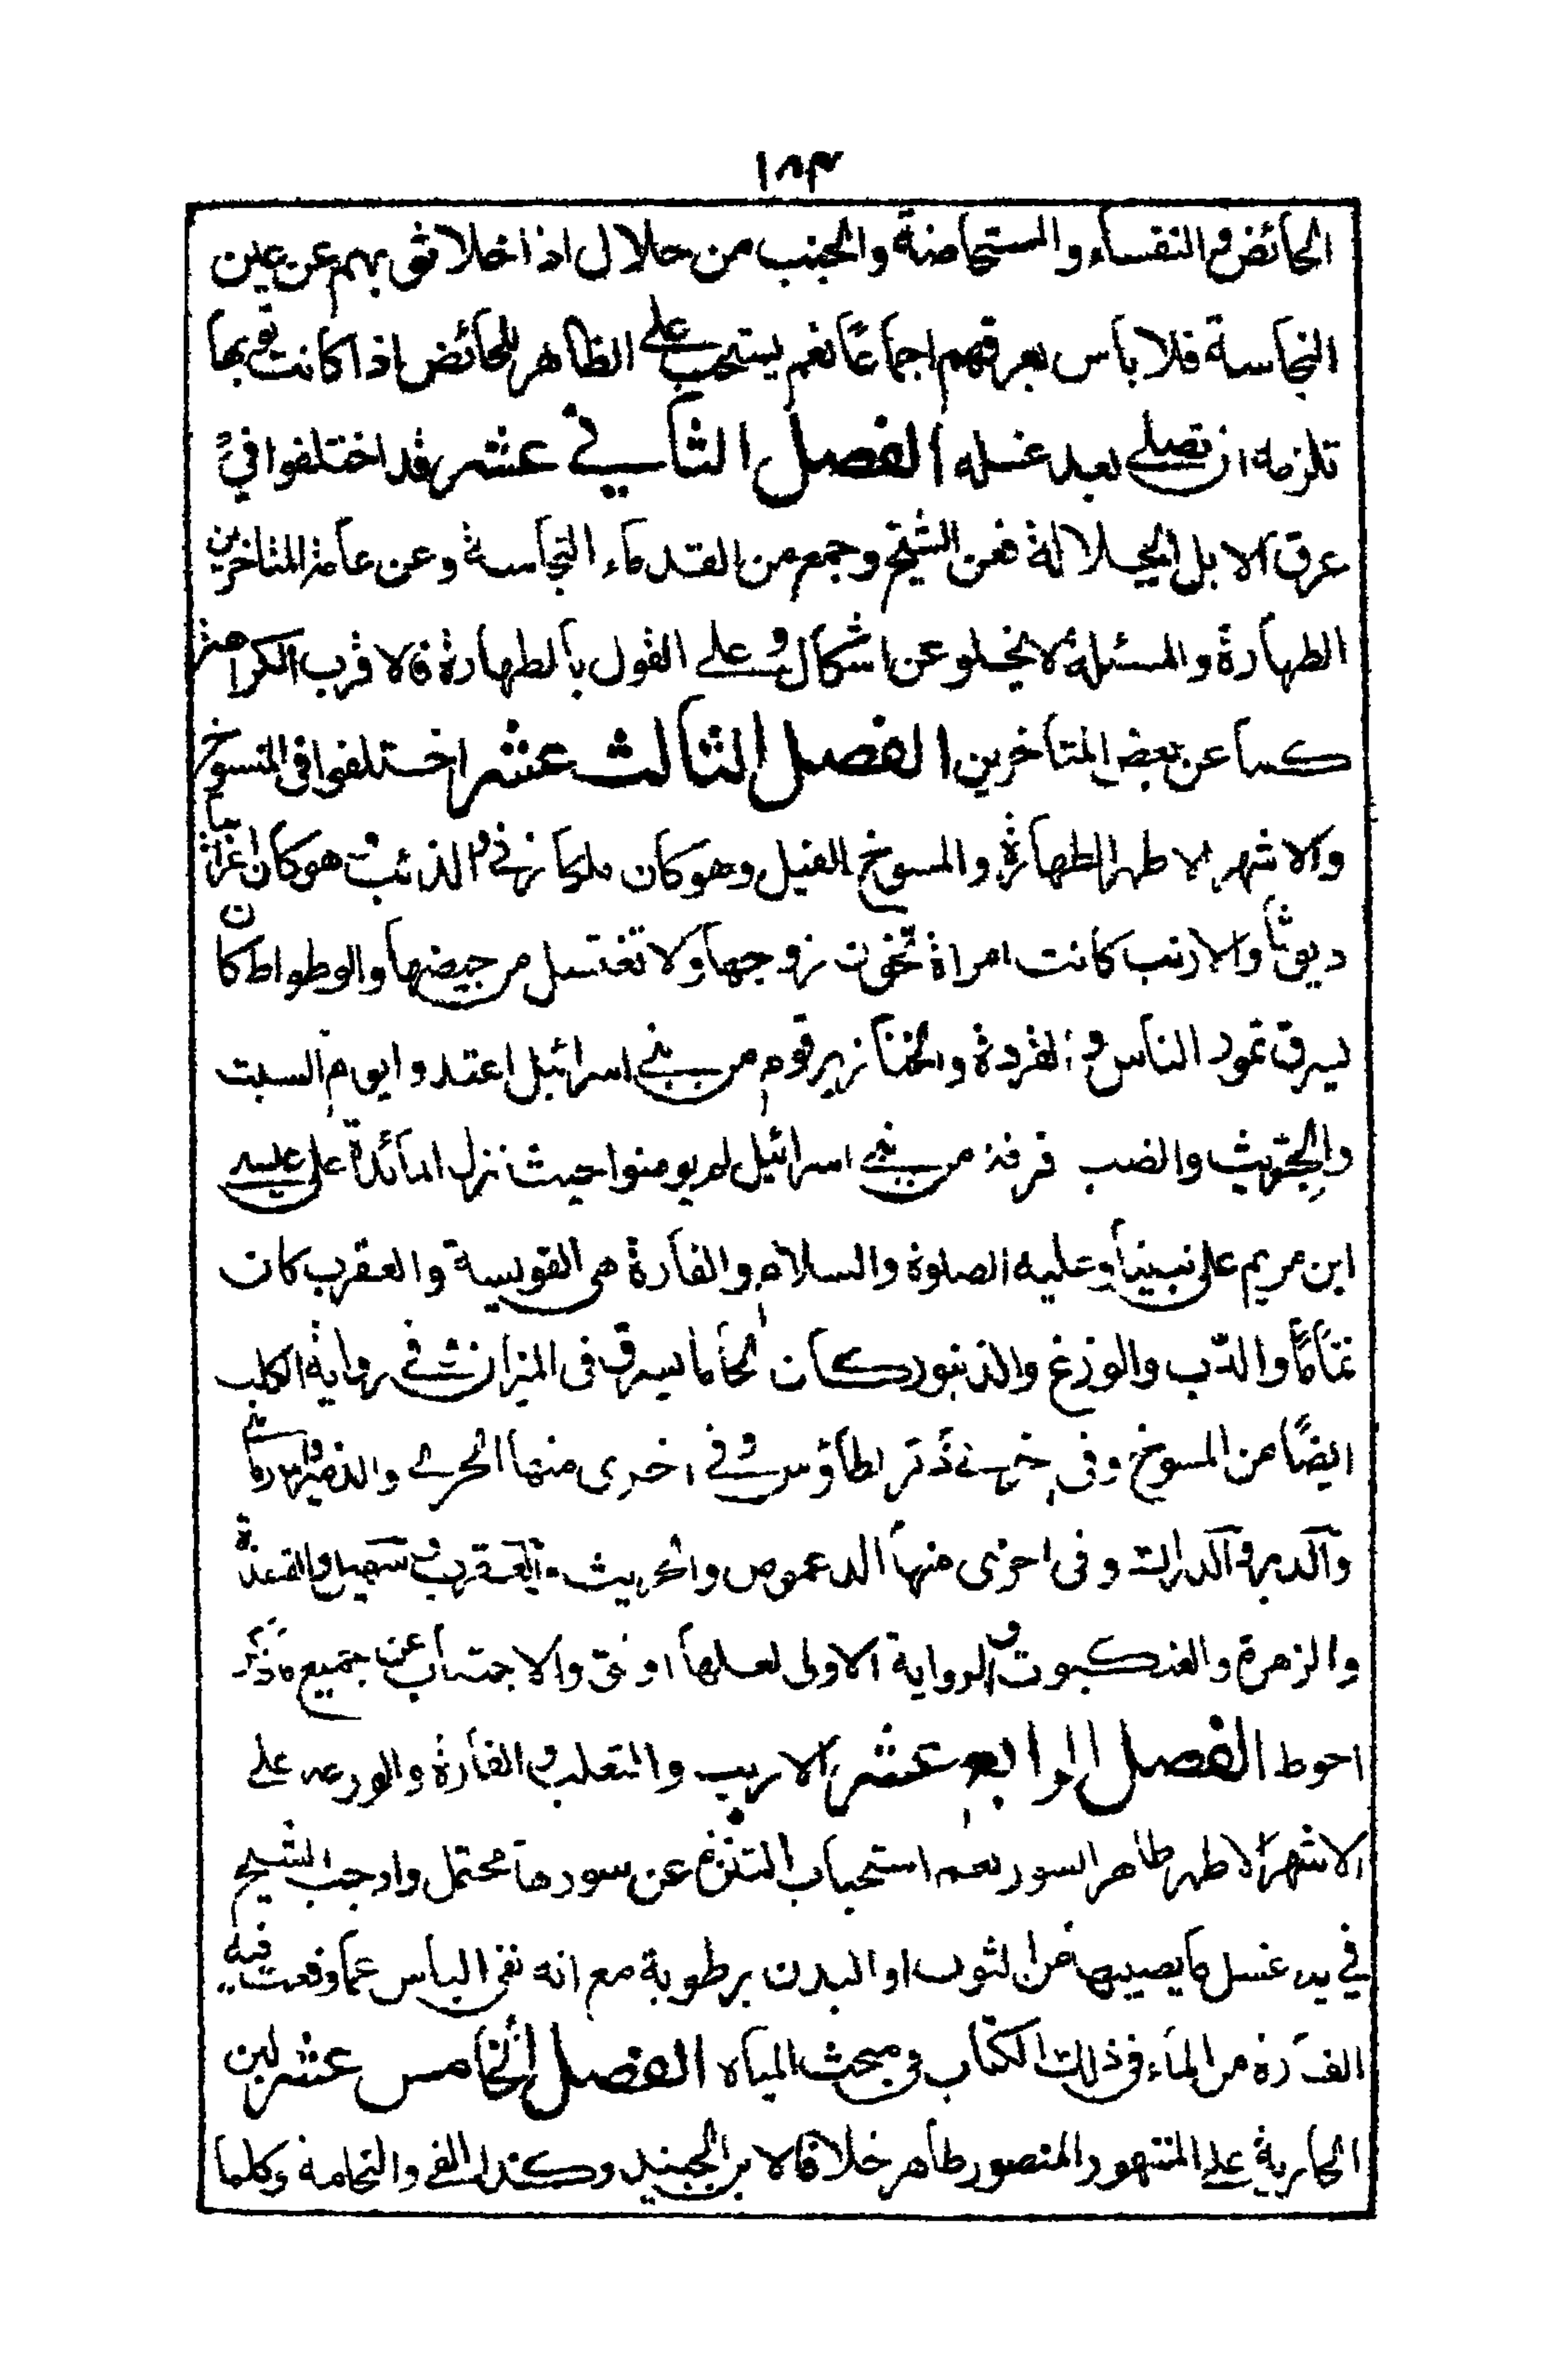 ١٨٣
الحائض والنفساء والمستحاضة والجنب من حلال اذا خلا ثوبهم عن عين
النجاسة فلا باس بعرقهم اجماعًا نعم يستحب على الظاهر للحائض اذا كانت ثوبها
تلزمه ان تصلى بعد غسله الفصل الثانى عشر قد اختلفوا فى
عرق الابل الجلالة فعن الشيخ وجمع من القدماء النجاسة وعن عامة المتاخرين
الطهارة والمسئلة لا يخلو عن اشكال وعلى القول بالطهارة فالاقرب الكراهة
كما عن بعض المتاخرين الفصل الثالث عشر اختلفوا فى المسوخ
والاشهر الاطهر الطهارة والمسوخ الفيل وهو كان ملكا زنى والذئب هو كان اعرابيا
ديوثا والارنب كانت امراة تخون زوجها ولا تغتسل من حيضها والوطواط كان
يسرق تمور الناس والقردة والخنازير قوم من بنى اسرائيل اعتدوا يوم السبت
والجريث والضب فرقة من بنى اسرائيل لم يومنوا حيث نزل المائدة على عيسى
ابن مريم على نبينا وعليه الصلوة والسلام والفارة هى الفويسة والعقرب كان
نماما والدب والوزغ والزنبور كان لحاما يسرق فى الميزان وفى رواية الكلب
ايضًا من المسوخ وفى اخرى الطاؤس وفى اخرى منها الجرى
وفى اخرى منها الدعموص والجريث والعقرب وسهيل والقنفذة
والزهرة والعنكبوت والرواية الاولى لعلها اوثق والاجتناب عن جميع ما ذكر
احوط الفصل الرابع عشر الارنب والثعلب والفارة والوزغة على
الاشهر الاطهر طاهر السور نعم استحباب التنزه عن سورها محتمل واوجب الشيخ
فى يه غسل ما يصيبها من الثوب او البدن برطوبة مع انه نفى الباس عما وقعت فيه
الفارة من الماء فى ذلك الكتاب فى مبحث المياه الفصل الخامس عشر لبن
الجارية على المشهور والمنصور طاهر خلافا لابن الجنيد وكذلك القى والنخامة وكلما